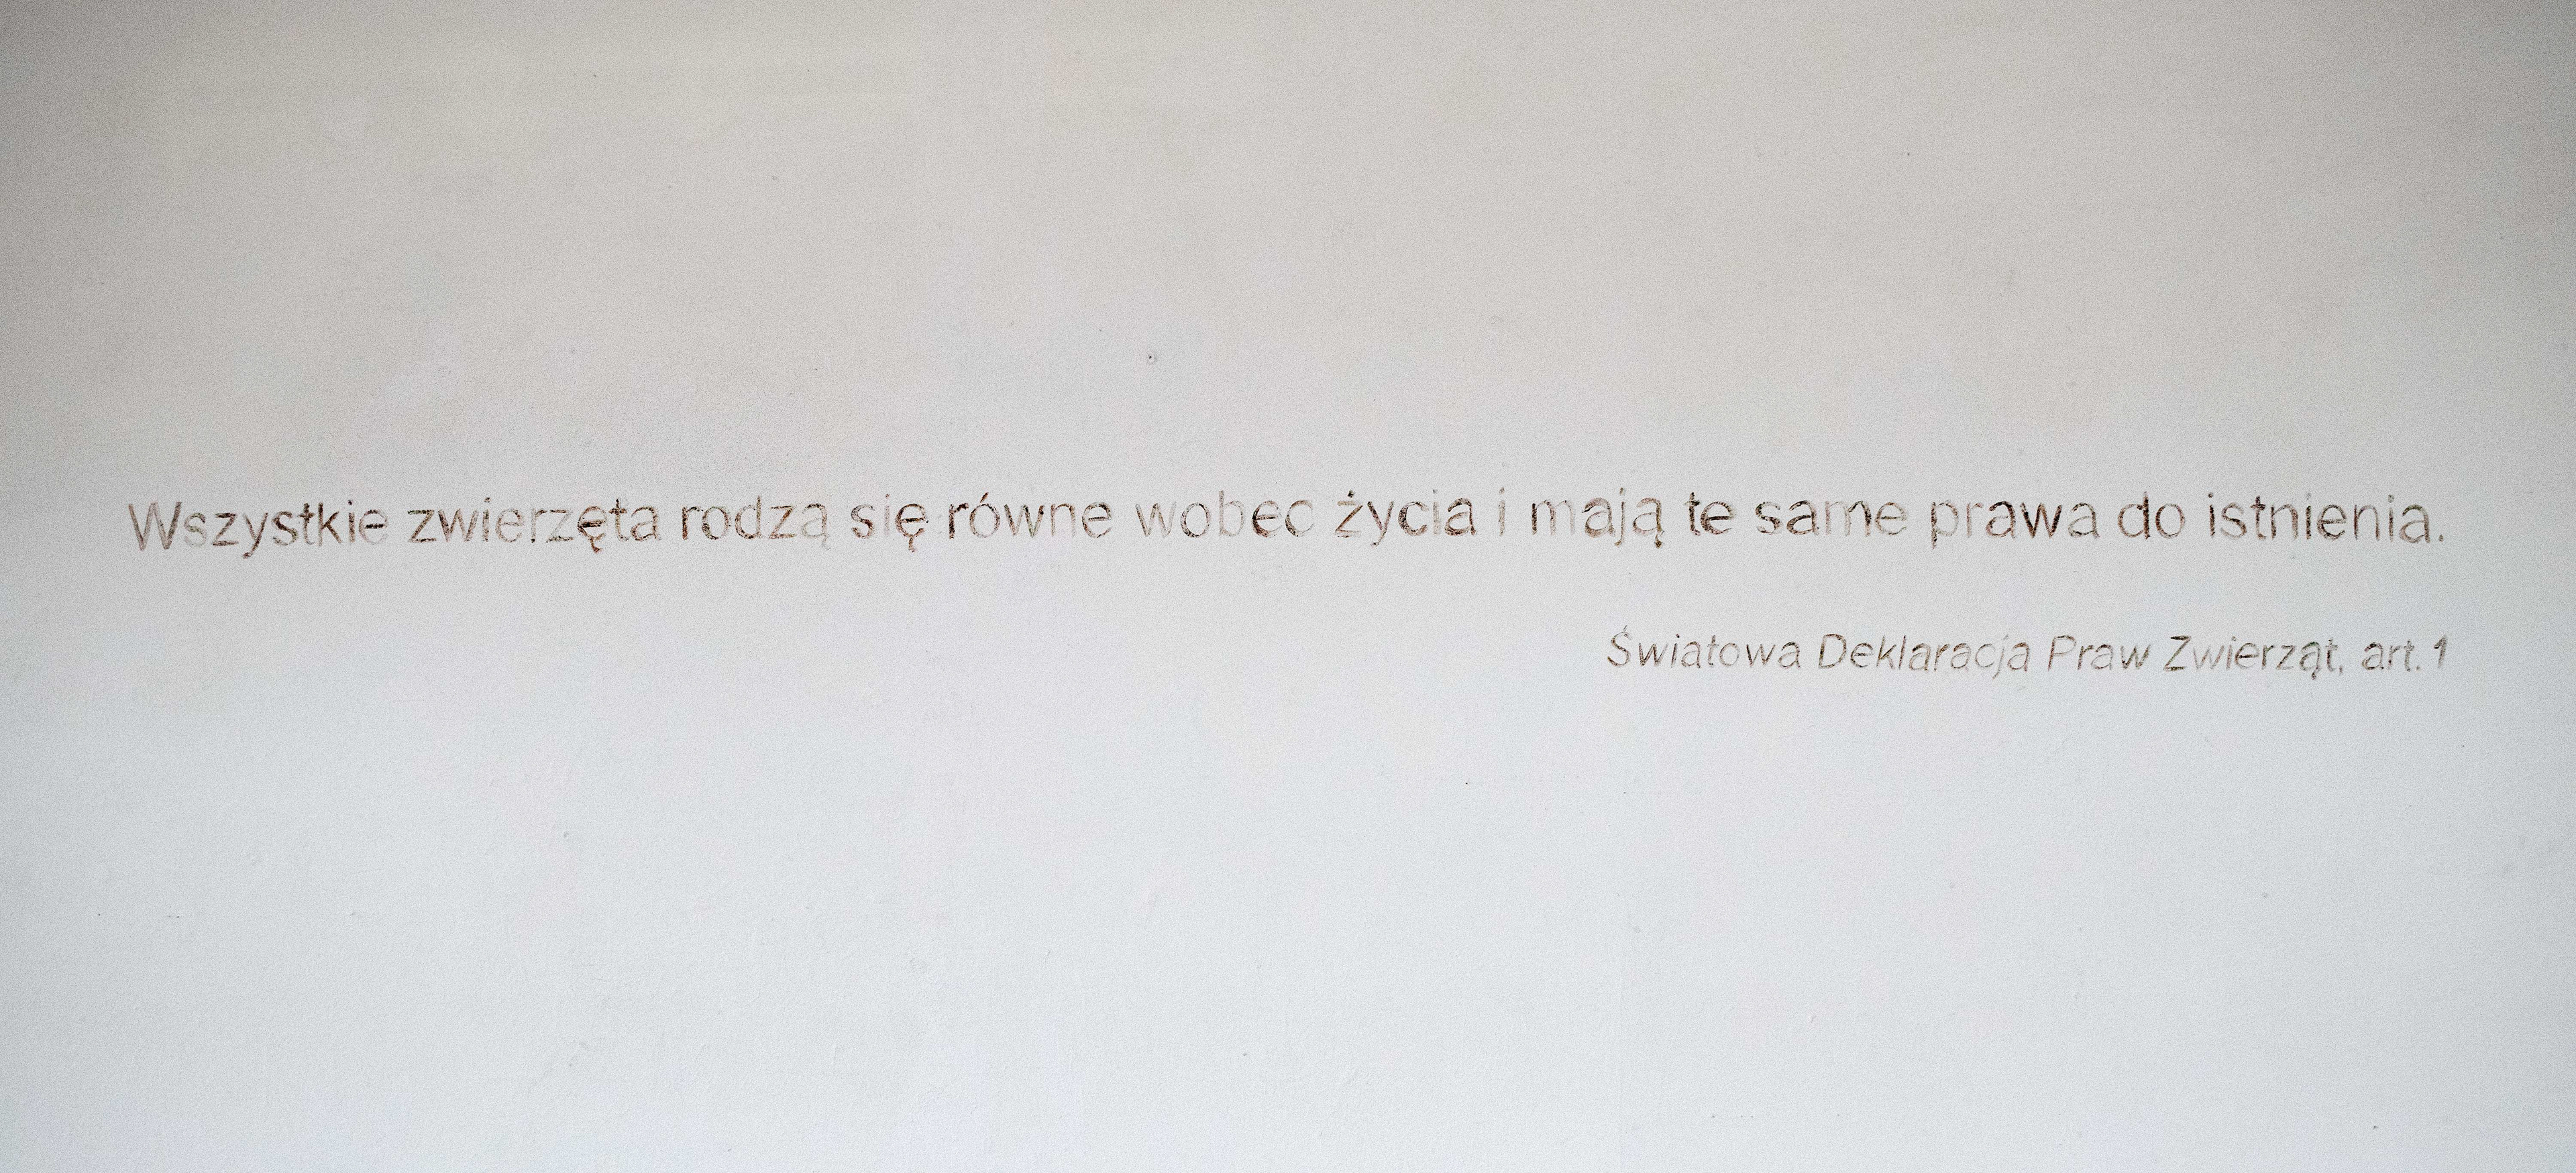 Wszystkie zwierzęta rodzą się równe wobec życia i mają te same prawa do istnienia.
Światowa Deklaracja Praw Zwierząt, art. 1